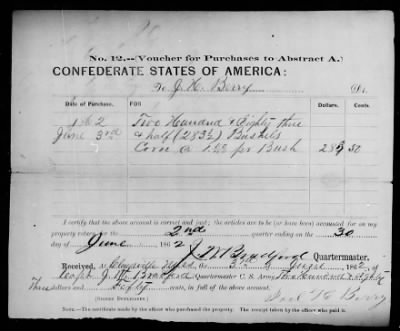 No. 12.--(Voucher for Purchases to Abstract A.)
CONFEDERATE STATES OF AMERICA:
To J. H. Berry Dr.
Date of Purchase. FOR Dollars. Cents
1862 Two Hundred & Eighty three
June 3rd & half (283½) Bushels
Corn @ 1.00 per Bush 283 50
I certify that the above account is correct and just; the articles are to be (or have been) accounted for on my
property return for the 2nd quarter ending on the 30
day of June 1862 J M Bradford Quartermaster.
Received, at the 3rd of 1862, of
Capt. J. M. Bradford Quartermaster C. S. Army, Two Hundred & Eighty
Three dollars and Fifty cents, in full of the above account.
(SIGNED DUPLICATES.) Joel H Berry
The signature of the officer who made the purchase. The receipt to the voucher